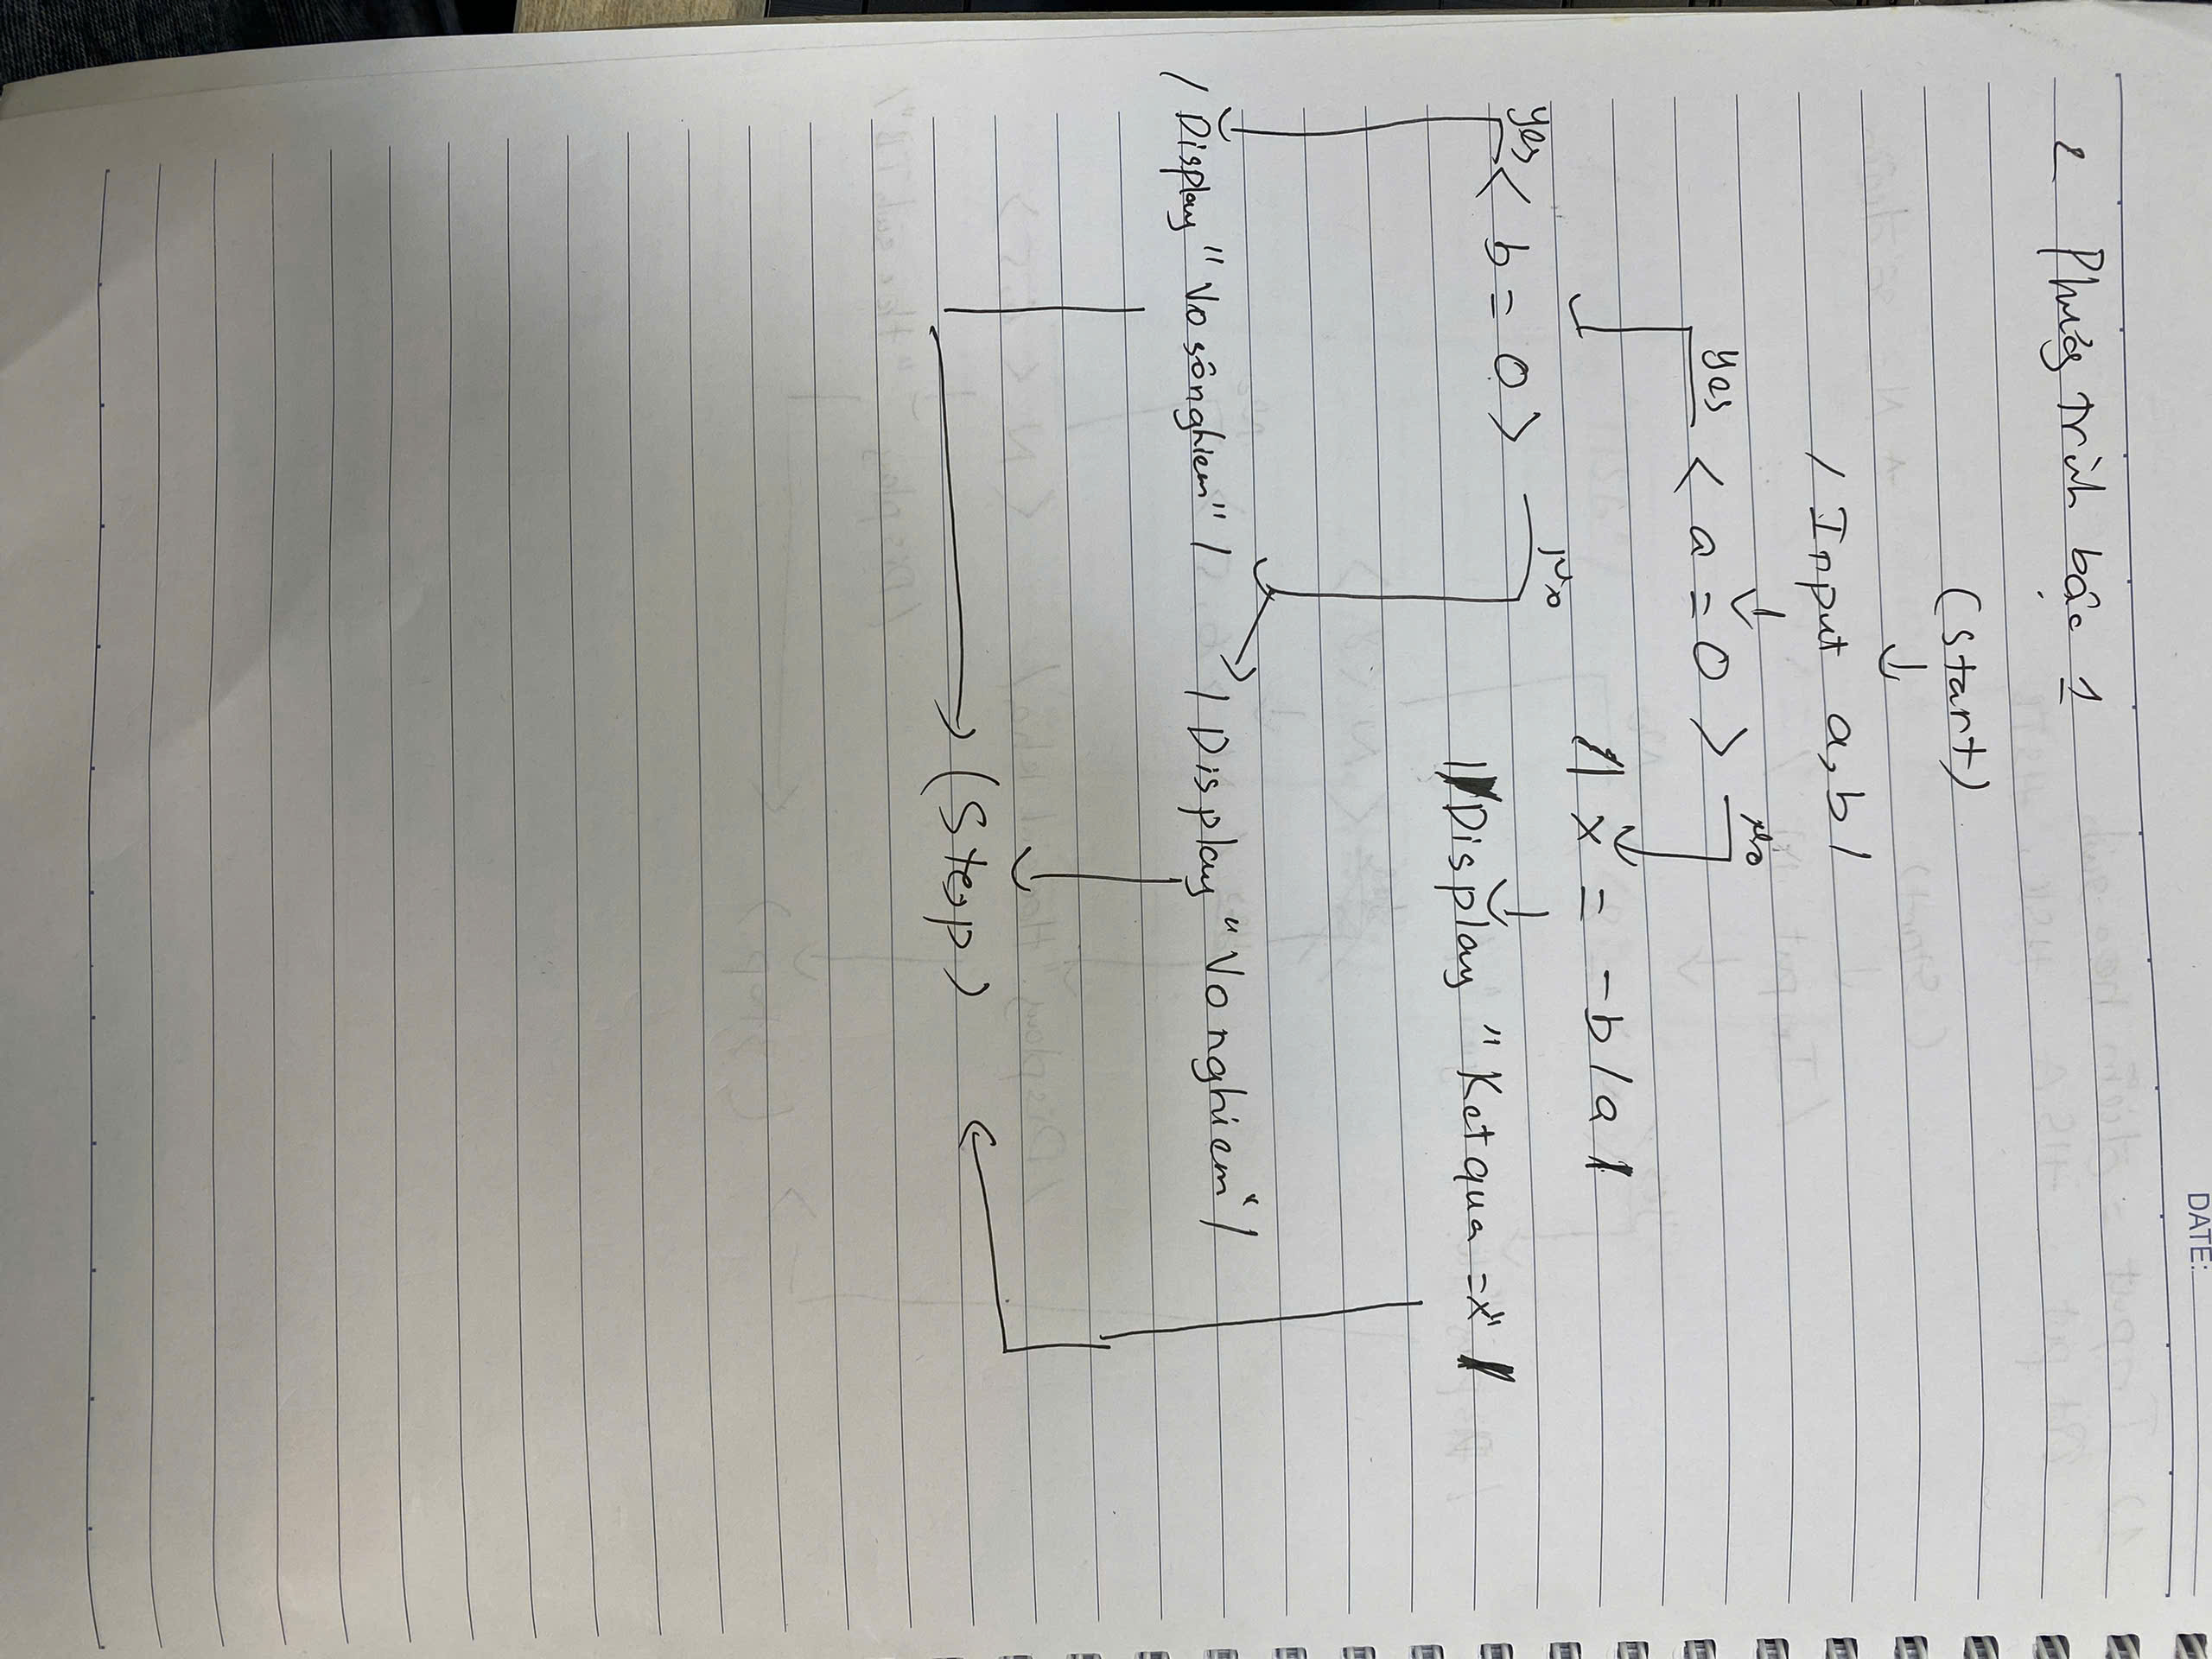 DATE:
2 Phương trình bậc 1
(Start)
/ Input a,b /
yes < a = 0 > no
/ x = -b/a /
yes < b = 0 > no
/ Display "Ket qua = x" /
/ Display "Vo sô nghiem" /
/ Display "Vo nghiem" /
(Stop)